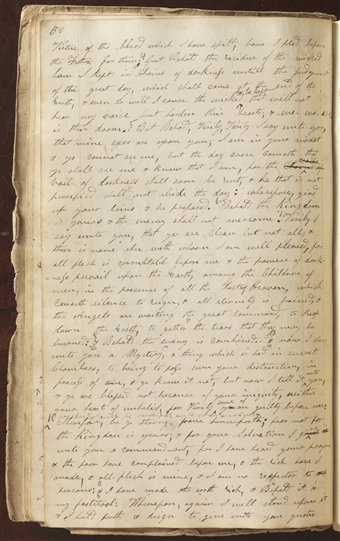 50
Virtue of the blood which I have spilt, have I pled before
the Father for them; but Behold the residue of the wicked
have I kept in chains of darkness untill the judgment
of the great day, which shall come at the end of the
Earth, & even so will I cause the wicked to be kept that will not
hear my voice but harden their hearts, & wo, wo, wo
is their doom. But Behold, Verily, Verily I say unto you,
that mine eyes are upon you; I am in your midst
& ye cannot see me, but the day soon cometh that
ye shall see me & know that I am, for the
vail of darkness shall soon be rent & he that is not
purified shall not abide the day: wherefore, gird
up your loins & be prepared. Behold the Kingdom
is yours & the enemy shall not overcome. Verily I
say unto you, that ye are clean but not all; &
there is none else with whom I am well pleased, for
all flesh is corruptable before me & the powers of dark-
ness prevail upon the Earth, among the Children of
men, in the presence of all the hosts of heaven, which
causeth silence to reign, & all eternity is pained; &
the Angels are waiting the great command, to reap
down the Earth, to gather the tares that they may be
burned; & Behold the enemy is combined. & now I shew
unto you a Mystery, a thing which is had in secret
Chambers, to bring to pass even your distruction, in
process of time, & ye knew it not; but now I tell it unto you,
& ye are blessed not because of your iniquity, neither
your hearts of unbelief, for Verily some of you are guilty before me;
Therefore, be ye strong from henceforth; fear not for
the Kingdom is yours; & for your Salvation I give
unto you a commandment, for I have heard your prayers
& the poor have complained before me, & the rich have I
made, & all flesh is mine, & I am no respecter to
persons; & I have made the earth rich, & Behold it is
my footstool: Wherefore, again I will stand upon it
& I hold forth & deign to give unto you greater